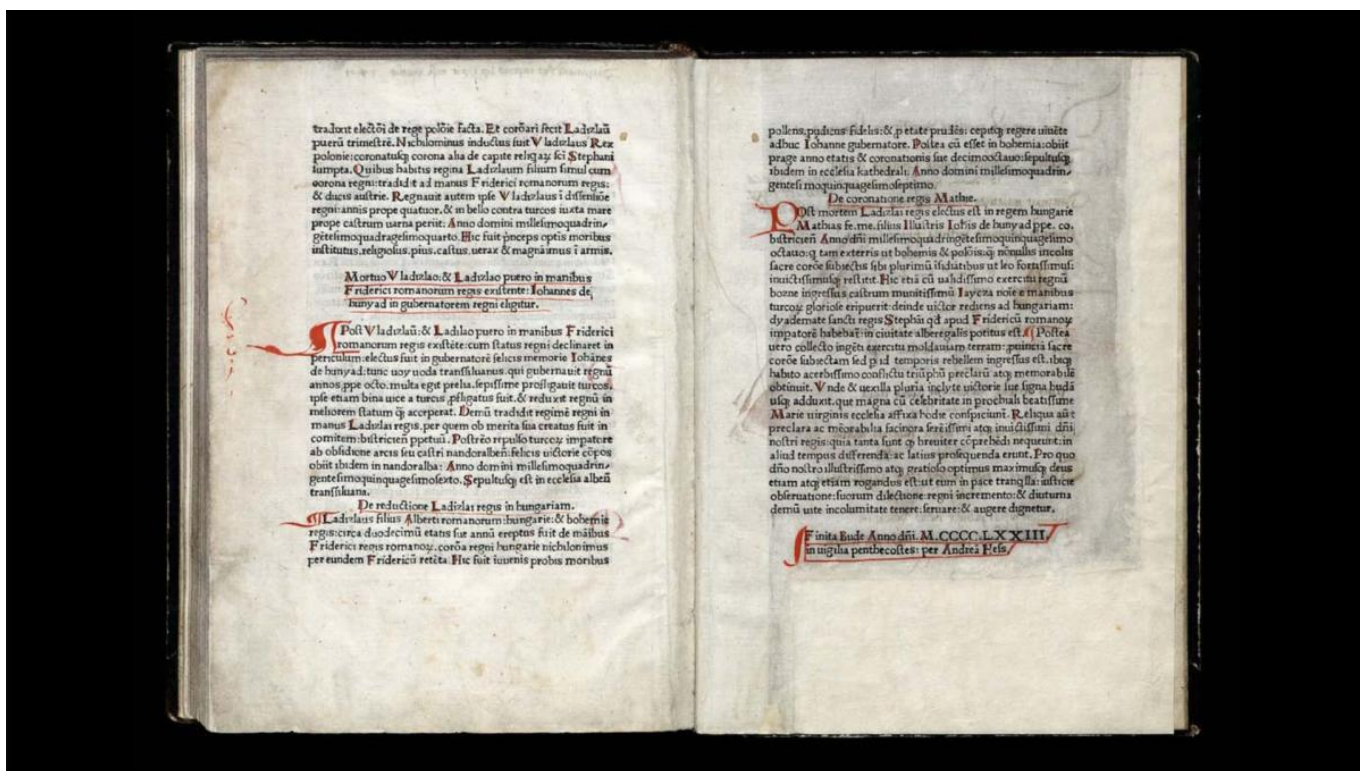 traduxit electōi de rege polōie facta. Et corōari fecit Ladizlaū
puerū trimestrē. Nichilominus inductus fuit Vladizlaus Rex
polonie: coronatusq; corona alia de capite reliqaꝝ sci Stephani
sumpta. Quibus habitis regina Ladizlaum filium simul cum
corona regni: tradidit ad manus Friderici romanorum regis:
& ducis austrie. Regnauit autem ipse Vladizlaus ī dissensiōe
regni: annis prope quatuor. & in bello contra turcos iuxta mare
prope castrum uarna periit: Anno domini millesimoquadrin-
gētesimoquadragesimoquarto. Hic fuit pnceps optis moribus
institutus, religiosus, pius, castus, uerax & magnāimus ī armis.
Mortuo Vladizlao: & Ladizlao puero in manibus
Friderici romanorum regis existente: Iohannes de
hunyad in gubernatorem regni eligitur.
Post Vladizlaū: & Ladilao puero in manibus Friderici
romanorum regis existēte: cum status regni declinaret in
periculum: electus fuit in gubernatorē felicis memorie Iohānes
de hunyad: tunc uoyuoda transsiluanus. qui gubernauit regnū
annos ppe octo. multa egit prelia. sepissime profligauit turcos.
ipse etiam bina uice a turcis pfligatus fuit. & reduxit regnū in
meliorem statum q̄ acceperat. Demū tradidit regimē regni in
manus Ladizlai regis. per quem ob merita sua creatus fuit in
comitem: bistricieñ ppetuū. Postrēo repulso turcoꝝ impatore
ab obsidione arcis seu castri nandoralbeñ: felicis uictorie cōpos
obiit ibidem in nandoralba: Anno domini millesimoquadrin-
gentesimoquinquagesimosexto. Sepultusq; est in ecclesia albeñ
transsiluana.
De reductione Ladizlai regis in hungariam.
Ladizlaus filius Alberti romanorum: hungarie: & bohemie
regis: circa duodecimū etatis sue annū ereptus fuit de māibus
Friderici regis romanoꝝ. corōa regni hungarie nichilonimus
per eundem Fridericū retēta. Hic fuit iuuenis probis moribus
pollens, pudicus fidelis: & p etate prudēs: cepitq; regere uiuēte
adhuc Iohanne gubernatore. Postea cū esset in bohemia: obiit
prage anno etatis & coronationis sue decimooctauo: sepultusq;
ibidem in ecclesia kathedrali. Anno domini millesimoquadrin-
gentesimoquinquagesimoseptimo.
De coronatione regis Mathie.
Post mortem Ladizlai regis electus est in regem hungarie
Mathias fe. me. filius Illustris Iohis de hunyad ppe. co.
bistricieñ Anno dñi millesimoquadringētesimoquinquagesimo
octauo: q tam exterris ut bohemis & polōis: q̄ nōnullis incolis
sacre corōe subiectis sibi plurimū īsidiātibus ut leo fortissimus:
inuictissimusq; restitit. Hic etiā cū ualidissimo exercitu regnū
bozne ingressus castrum munitissimū Iaycza noīe e manibus
turcoꝝ gloriose eripuerit: deinde uictor rediens ad hungariam:
dyademate sancti regis Stephāi qd apud Fridericū romanoꝝ
impatorē habebat: in ciuitate alberegalis potitus est. Postea
uero collecto ingēti exercitu moldauiam terram: puinciā sacre
corōe subiectam sed p id temporis rebellem ingressus est. ibiq;
habito acerbissimo conflictu triūphū preclarū atq; memorabilē
obtinuit. Vnde & uexilla pluria inclyte uictorie sue signa budā
usq; adduxit. que magna cū celebritate in prochiali beatissime
Marie uirginis ecclesia affixa hodie conspiciunt. Reliqua aūt
preclara ac mēorabilia facinora serēissimi atq; inuictissimi dñi
nostri regis: quia tanta sunt q̄ breuiter cōprehēdi nequeunt: in
aliud tempus differenda: ac latius prosequenda erunt. Pro quo
dño nostro illustrissimo atq; gratioso optimus maximusq; deus
etiam atq; etiam rogandus est: ut eum in pace tranqlla: iusticie
obseruatione: suorum dilectione: regni incremento: & diuturna
demū uite incolumitate tenere: seruare: & augere dignetur.
Finita Bude Anno dñi. M.CCCC.LXXIII.
in uigilia penthecostes: per Andreā Hess.